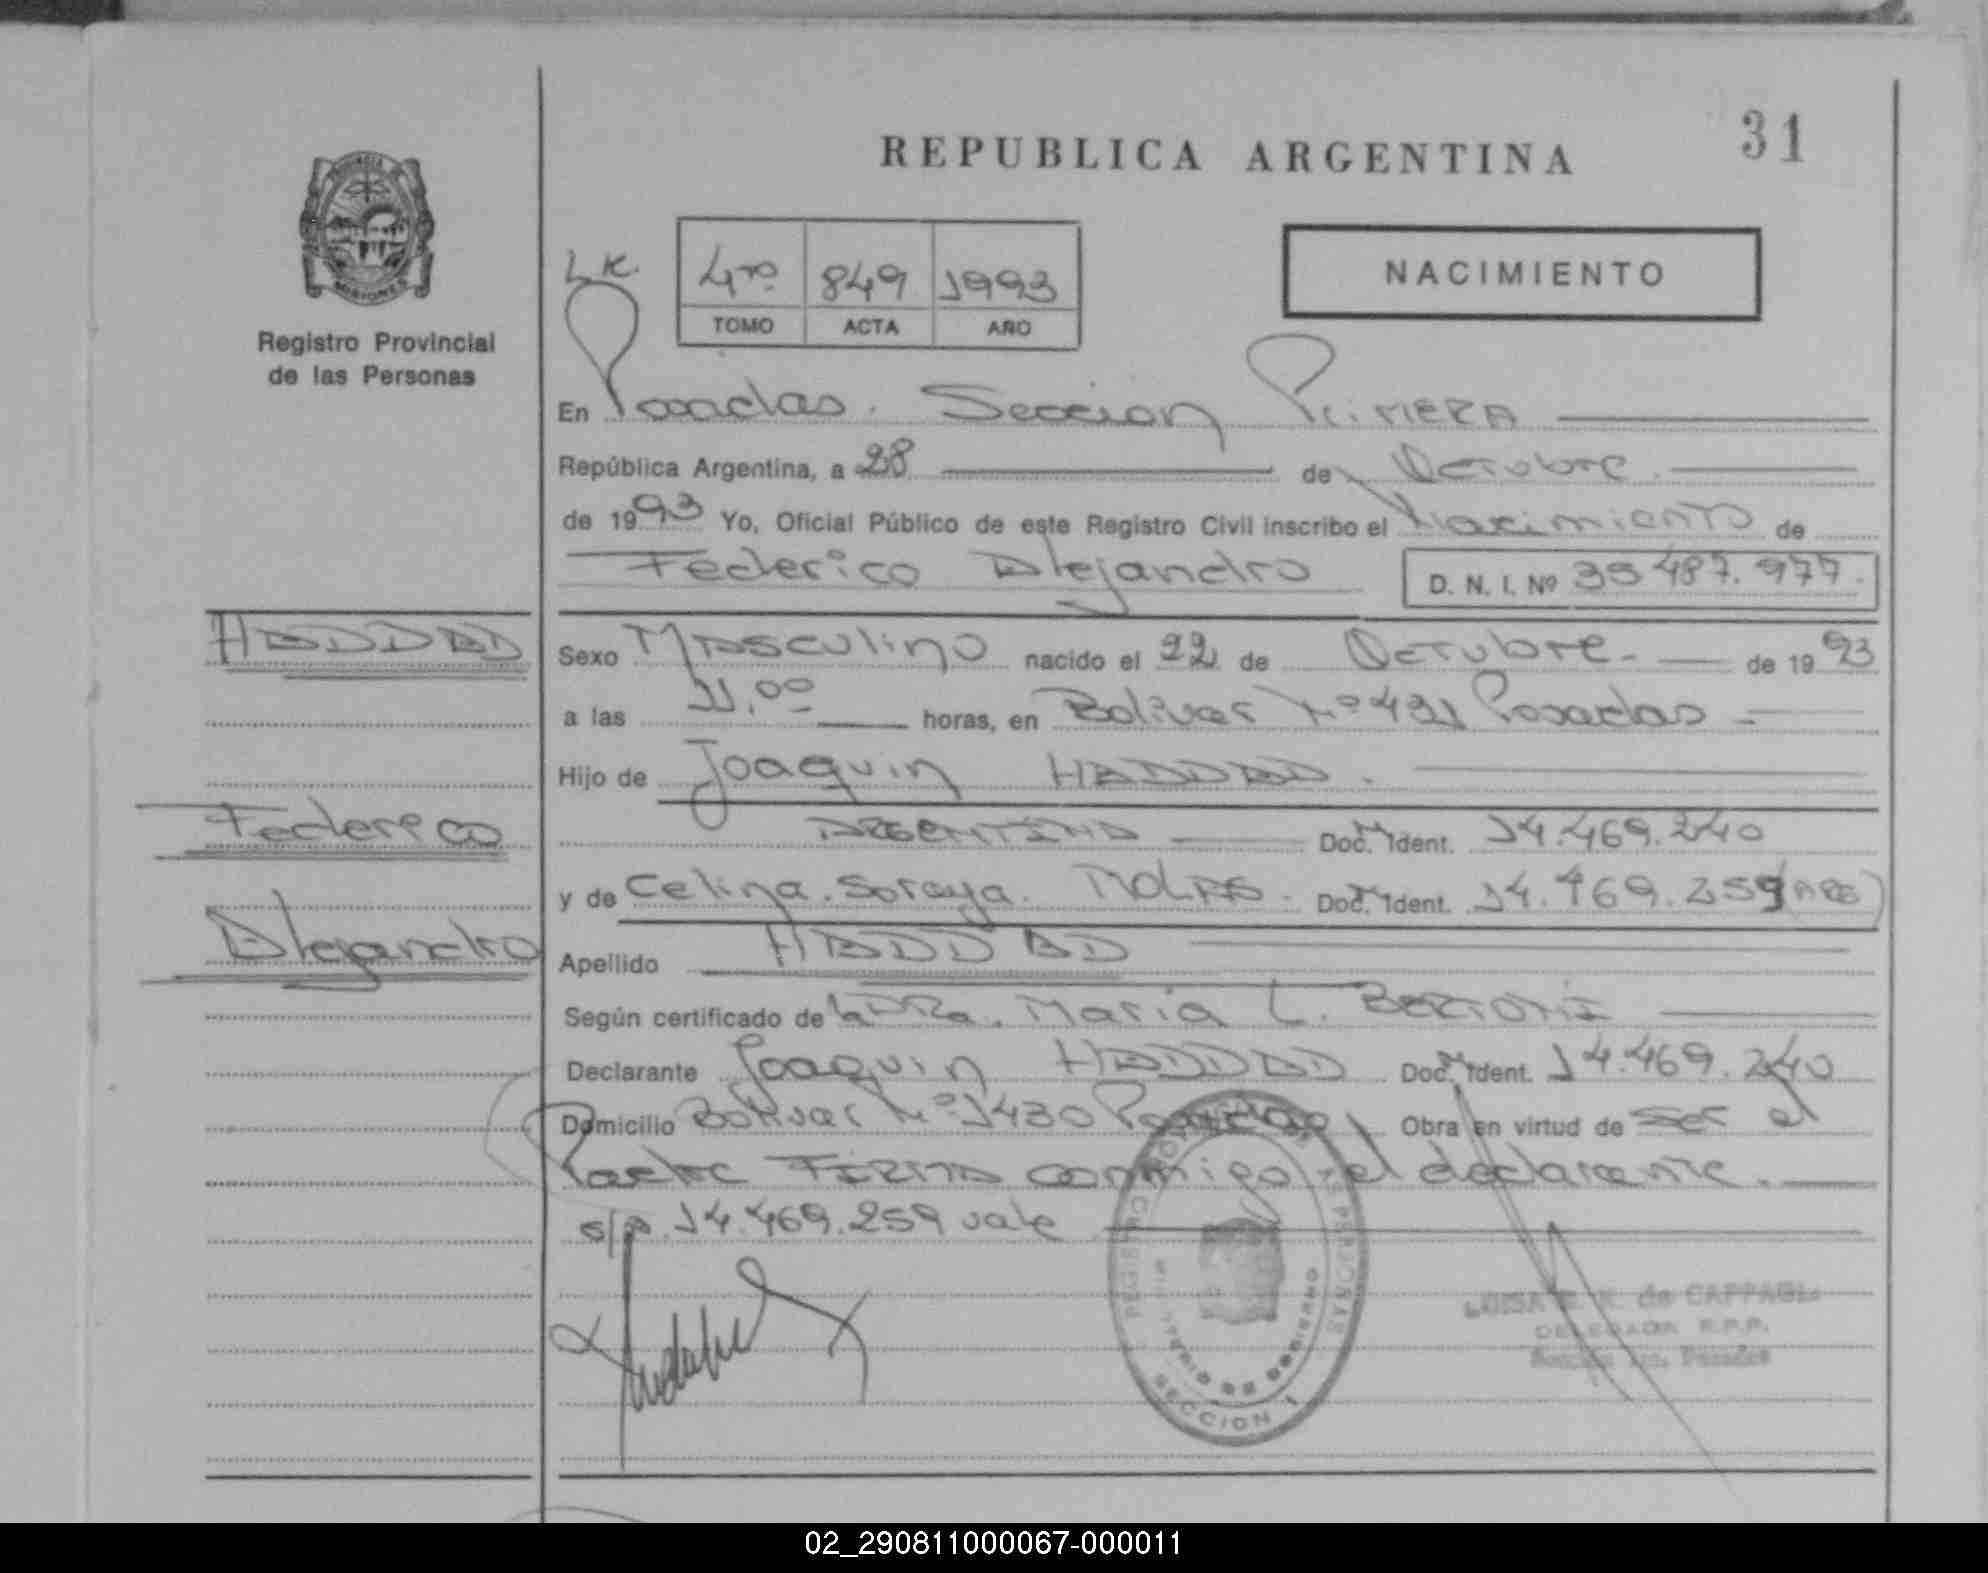 REPUBLICA ARGENTINA
31
PROVINCIA
MISIONES
Registro Provincial
de las Personas
4to 849 1993
TOMO ACTA AÑO
NACIMIENTO
En Posadas. Sección Primera
República Argentina, a 28 de Octubre.
de 1993 Yo, Oficial Público de este Registro Civil inscribo el Nacimiento de
Federico Alejandro D. N. I. Nº 35 487.977.
HADDAD
Sexo Masculino nacido el 22 de Octubre - de 1993
a las 11,00 horas, en Bolivar Nº 421 Posadas -
Hijo de Joaquin HADDAD.
Federico
ARGENTINO Doc. Ident. 14.469.240
y de Celina. Soraya. MOLAS - Doc. Ident. 14.469.259 (ARG)
Alejandro
Apellido HADDAD
Según certificado de la DRa. Maria L. BERTONI
Declarante Joaquin HADDAD Doc. Ident. 14.469.240
Domicilio Bolivar Nº 1430 Posadas Obra en virtud de ser el
Padre FIRMA conmigo el declarante.
s/r. 14.469.259 vale
REGISTRO PROVINCIAL DE LAS PERSONAS
MINISTERIO DE GOBIERNO
SECCION 1
LUISA de CAPPAGLI
DELEGADA R.P.P.
Sección 1ra. Posadas
02_290811000067-000011